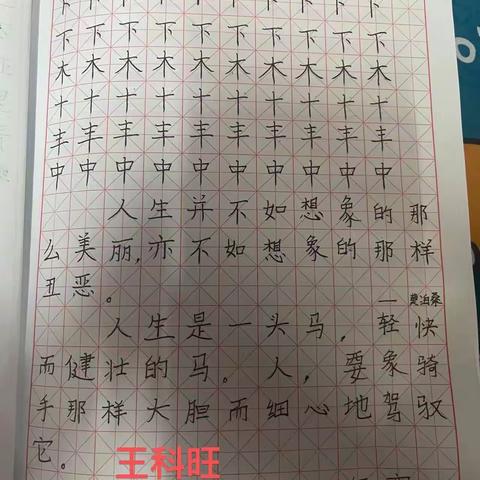 下下下下下下下下下下
下下下下下下下下下下
木木木木木木木木木木
十十十十十十十十十十
丰丰丰丰丰丰丰丰丰丰
中中中中中中中中中中
人生并不如想象的那
么美丽,亦不如想象的那样
丑恶。
—莫泊桑
人生是一头马,轻快
而健壮的马。人,要象骑
手那样大胆而细心地驾驭
它。
王科旺